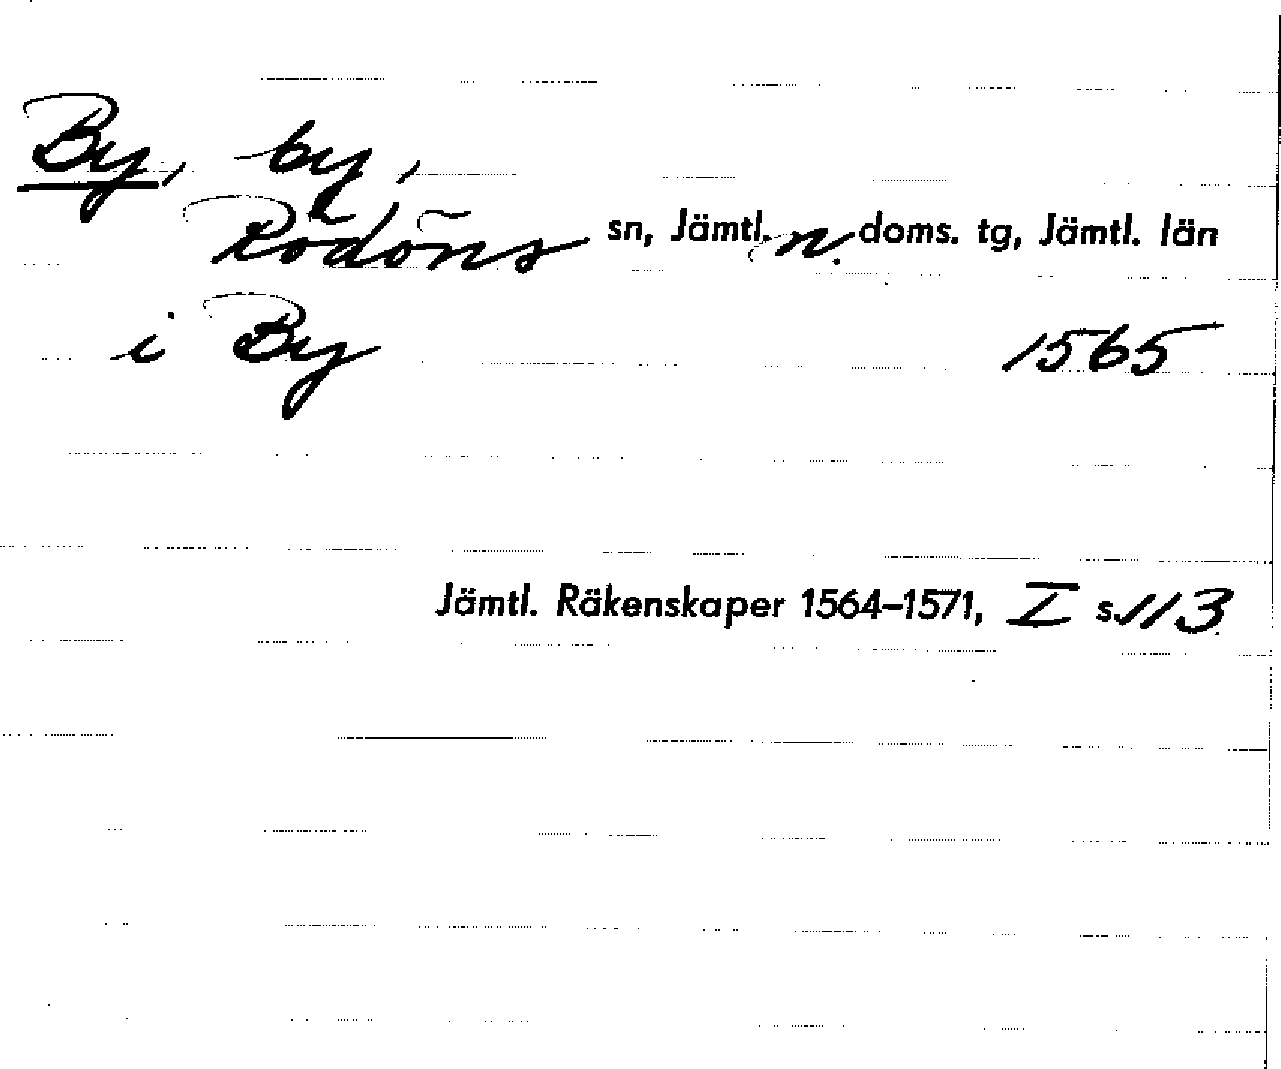 By, by,
Rödöns sn, Jämtl. n. doms. tg, Jämtl. län
i By 1565
Jämtl. Räkenskaper 1564–1571, I s. 113